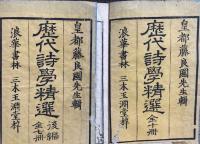 皇都藤良國先生輯
歴代詩學精選 全十冊
浪華書林 三木玉淵堂梓
皇都藤良國先生輯
歴代詩學精選 後編 全七冊
浪華書林 三木玉淵堂梓